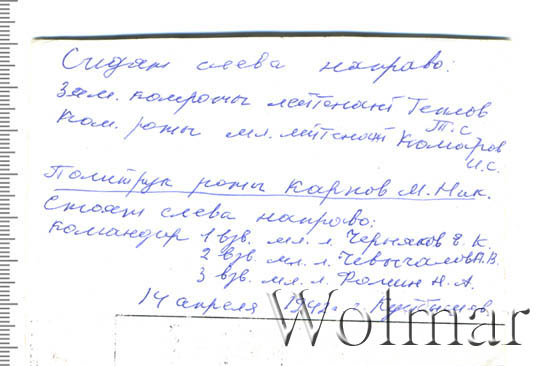 Сидят слева направо:
Зам. комроты лейтенант Теплов
Т. С
Ком. роты мл. лейтенант Комаров
И. С.
Политрук роты Карпов М. Ник.
Стоят слева направо:
Командир 1 взв. мл. л. Черняков Е. К.
2 взв. мл. л. Чевычалов А. В.
3 взв. мл. л. Фомин Н. А.
14 апреля 1942 г.
Wolmar